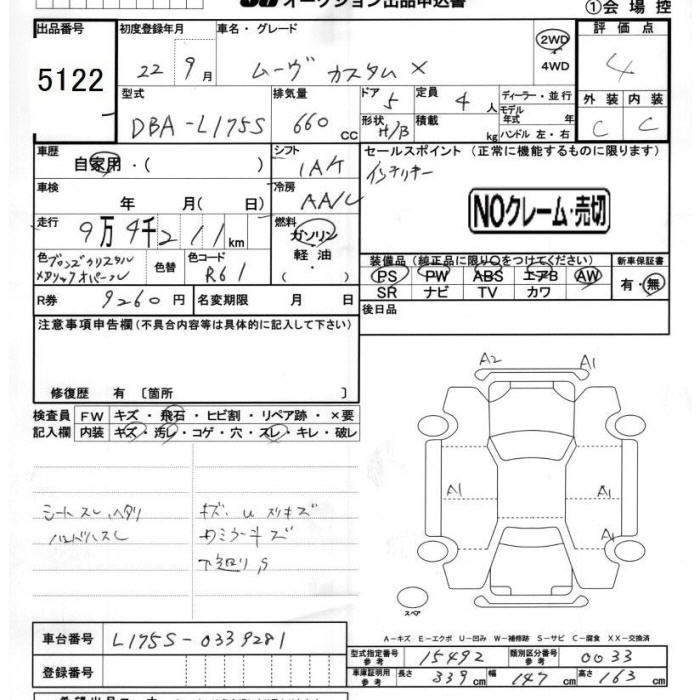 オークション出品申込書
①会場控
出品番号
5122
初度登録年月
22 9月
車名・グレード
ムーヴ カスタム X
2WD
4WD
評価点
4
外装 内装
C C
型式
DBA-L175S
排気量
660 cc
ドア 5
形状 H/B
定員 4 人
積載 kg
ディーラー・並行
モデル年式 年
ハンドル 左・右
車歴
自家用・( )
シフト
IAT
セールスポイント (正常に機能するものに限ります)
インテリキー
NOクレーム・売切
車検
年 月(日)
冷房
AA/C
走行
9万4千211km
燃料
ガソリン
軽油
( )
色 ブロンズクリスタル
メタリックオパール
色替
色コード
R61
装備品(純正品に限り○をつけてください)
PS PW ABS エアB AW
SR ナビ TV カワ
新車保証書
有・無
R券 9260円
名変期限 月 日
後日品
注意事項申告欄(不具合内容等は具体的に記入して下さい)
修復歴 有〔箇所 〕
検査員記入欄
FW キズ・飛石・ヒビ割・リペア跡・×要
内装 キズ・汚レ・コゲ・穴・スレ・キレ・破レ
シートスレ、ヘタリ
ハンドルスレ
キズ・U スリキズ
カミラーキズ
下廻りS
A2 A1
A1 A1
A1
スペア
A-キズ E-エクボ U-凹み W-補修跡 S-サビ C-腐食 XX-交換済
車台番号
L175S-0339281
登録番号
型式指定番号参考 15492
類別区分番号参考 0033
車庫証明用参考 長さ 339cm 幅 147cm 高さ 163cm